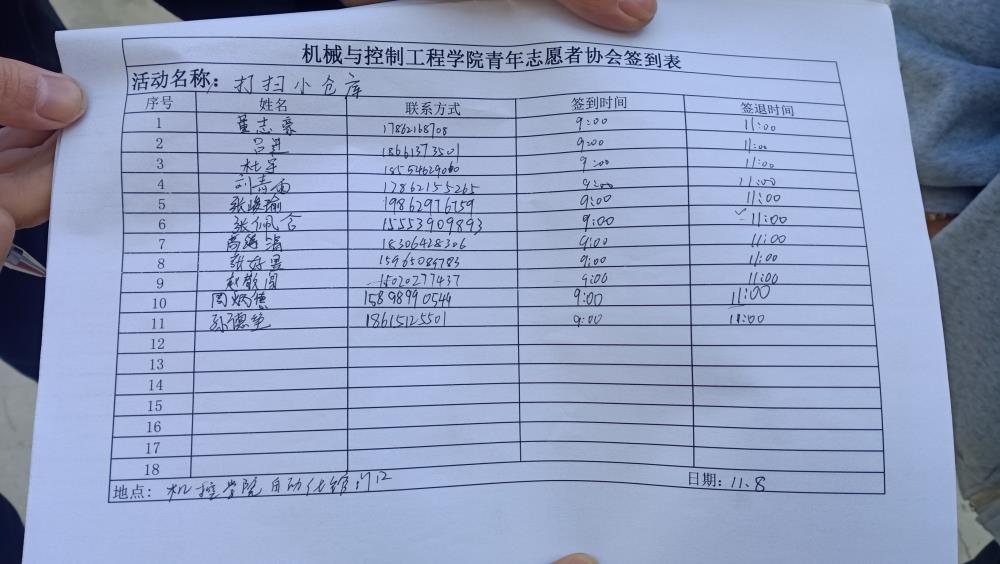 机械与控制工程学院青年志愿者协会签到表
活动名称：打扫小仓库
序号 姓名 联系方式 签到时间 签退时间
1 董志豪 17862168708 9:00 11:00
2 吕建 18661373501 9:00 11:00
3 杜军 18554629060 9:00 11:00
4 刘青雨 17862155265 9:00 11:00
5 张峻瑜 19862976759 9:00 11:00
6 张佩含 15553909893 9:00 11:00
7 18306428306 9:00 11:00
8 15965089783 9:00 11:00
9 赵敬闯 15020277437 9:00 11:00
10 周炳德 15898990549 9:00 11:00
11 孙德 18615125501 9:00 11:00
12
13
14
15
16
17
18
地点：机控学院自动化馆门口 日期：11.8